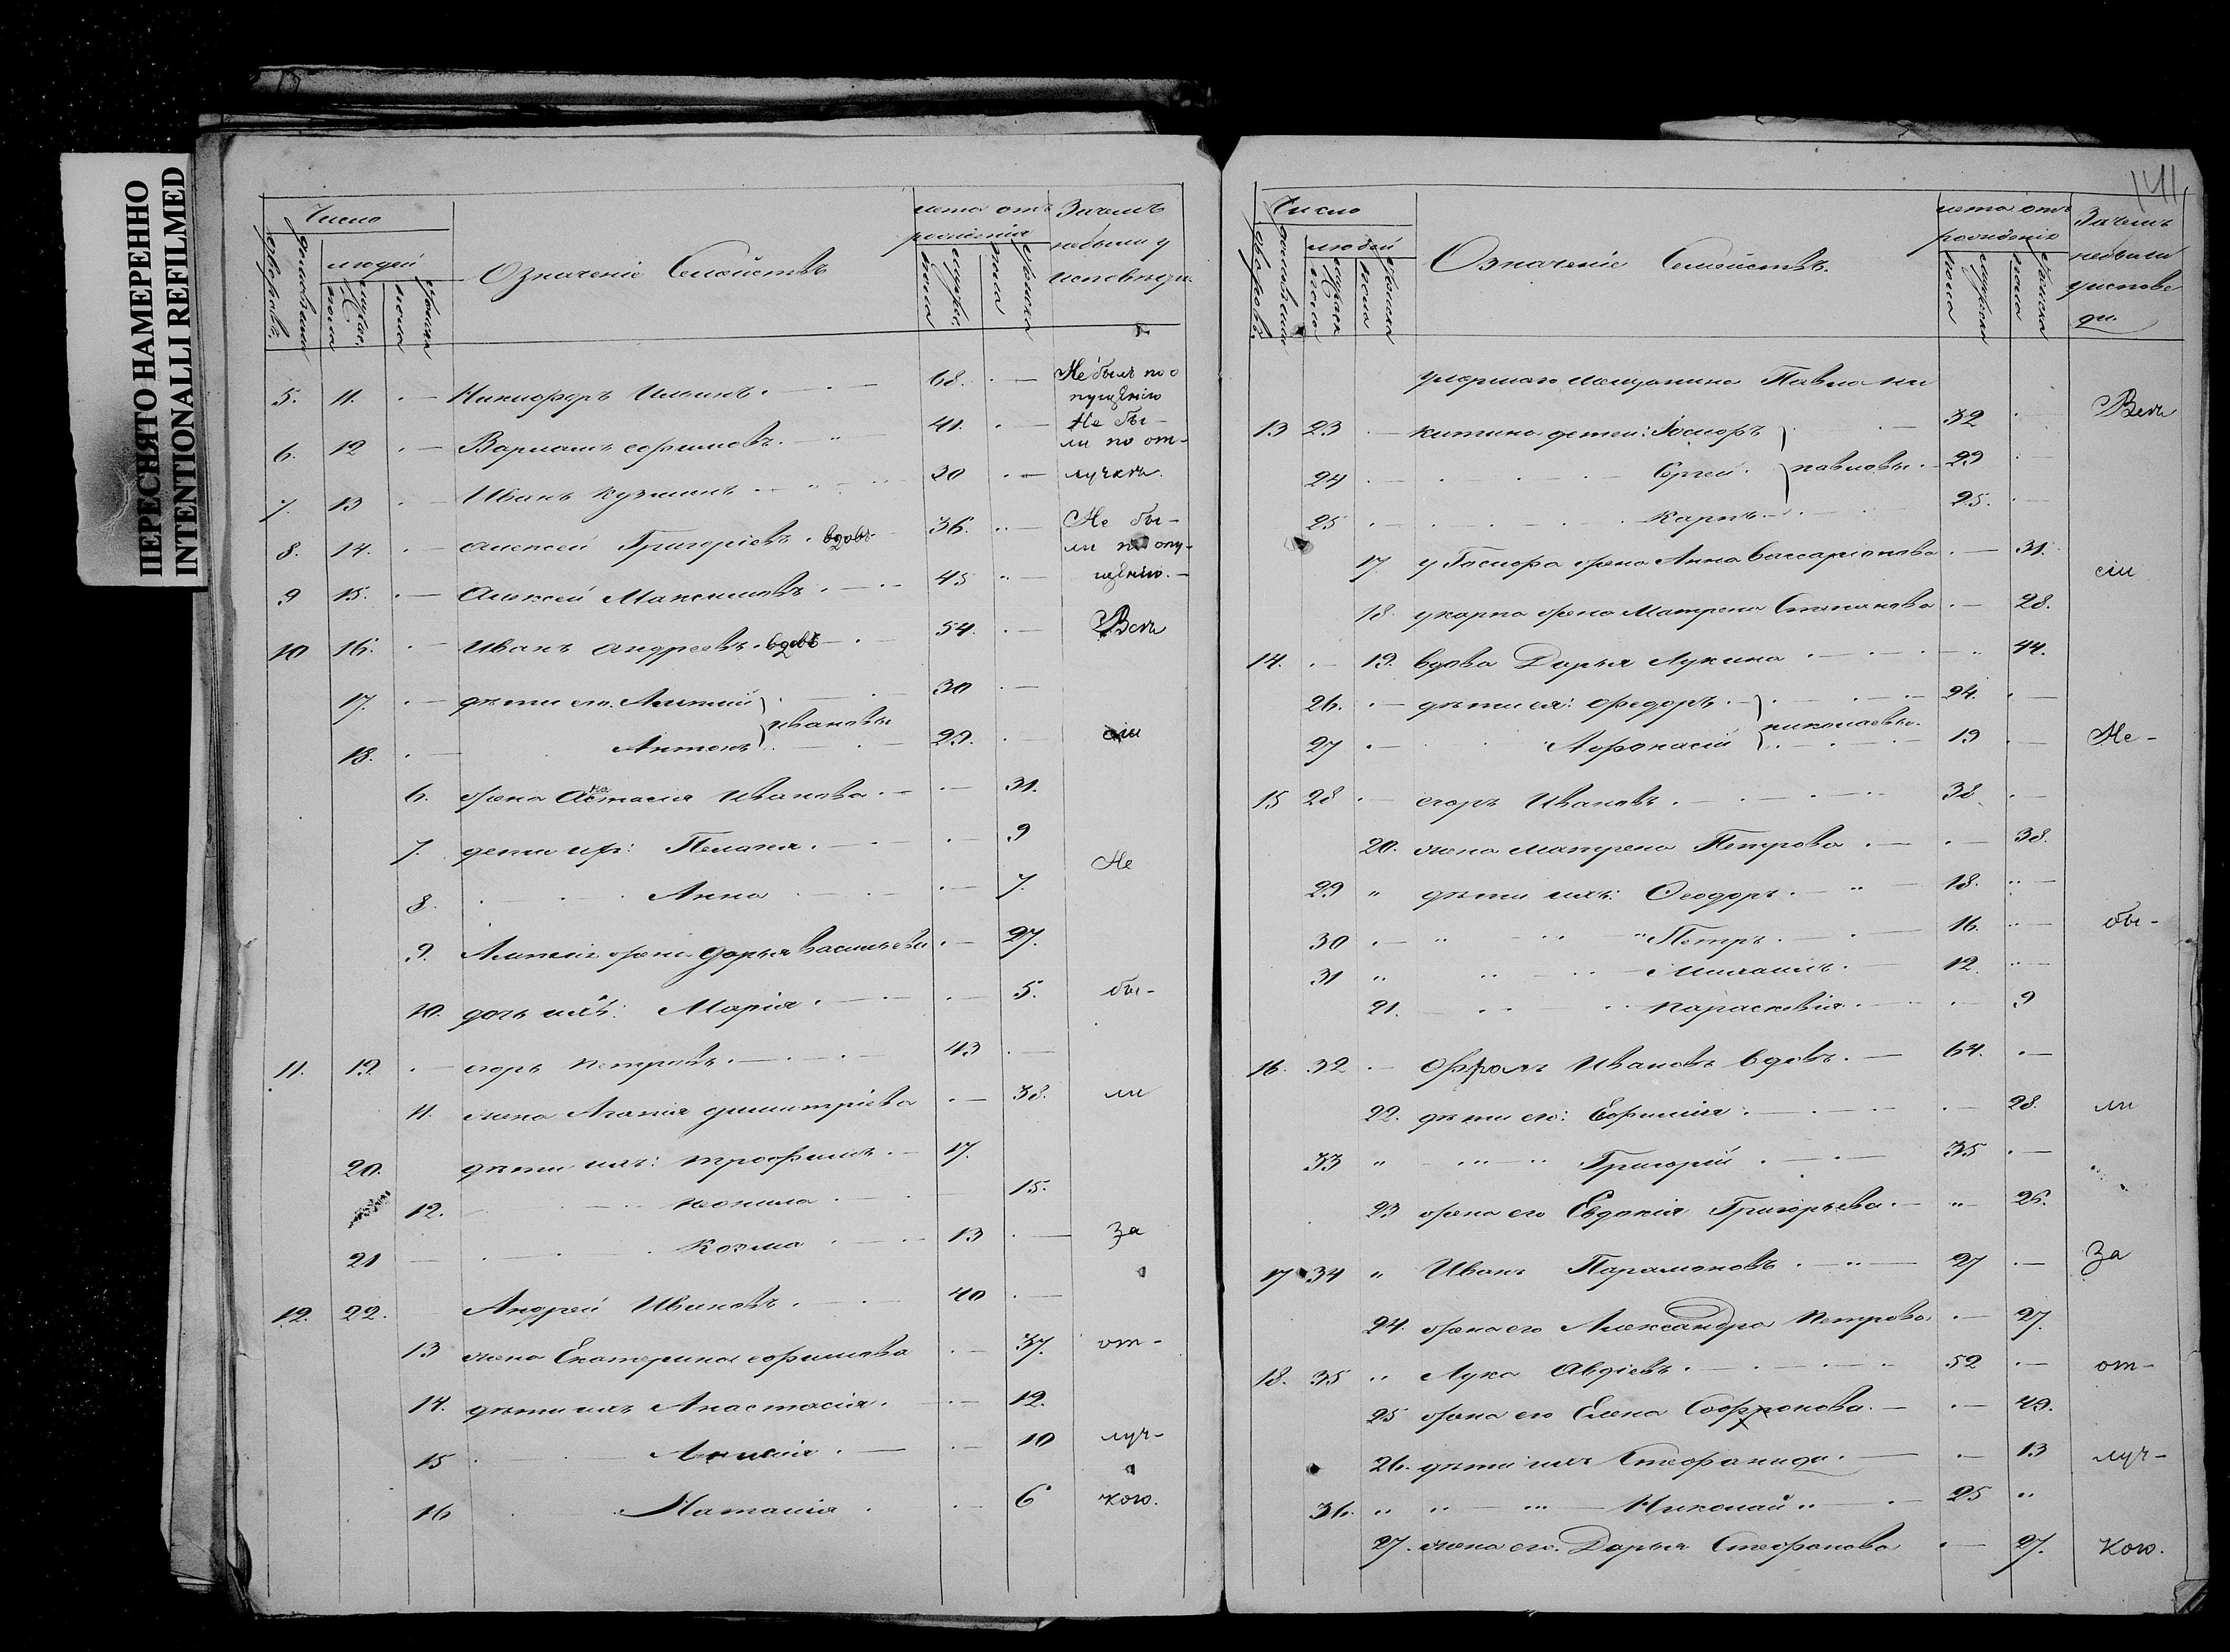 ПЕРЕСНЯТО НАМЕРЕННО
INTENTIONALLI REFILMED
Число
людей
Означеніе Семействъ
лета отъ рожденія
Зачемъ небыли у исповѣди.
5. 11. Никифоръ Ильинъ. 68. Не былъ по опущенію
6. 12 Варлаамъ ефимовъ. 41. Не бы-
ли по от-
7. 13 Иванъ кузминъ 30 лучкѣ.
8. 14. алексей Григоріевъ. вдовъ 36. Не бы-
ли по опу-
9 15. Алексей Максимовъ. 45 щенію.
10 16. Иванъ андреевъ. вдовъ 54. Всѣ
17. дѣти его. Алипий } ивановы 30
18. Антонъ 29. сіи
6. жена Анастасия Иванова. 31.
7. дети их: Пелагея. 9
Не
8. Анна 7.
9. Алипия жена Дарья васильева 27.
10. дочь ихъ: Марія 5. бы-
11. 19. егоръ петровъ. 43
11. жена Агапия димитріева 38. ли
20. дѣти ихъ: трофимъ. 17.
12. неонила 15.
21 Козма 13 за
12. 22. Андрей Ивановъ. 40
13 жена Екатерина ефимова 37. от-
14. дѣти ихъ Анастасія. 12.
15 10 луч-
16 Наталия 6 кою.
141
Число
людей
Означеніе Семействъ.
лета отъ рожденія
Зачемъ небыли уисповеди.
умершаго мещанина Павла ни
13 23 китина детей: Іосифъ 32 Всѣ
24 Сергей } павловы. 29
25 Карпъ. 25.
17. у Іосифа жена Анна виссарионова 31. сіи
18. укарпа жена Матрена Степанова 28.
14. 19. вдова Дарья Лукина 44.
26. дѣти ея: Федоръ } николаевы. 24.
27 Афонасій 19 Не-
15 28 егоръ Ивановъ 38.
20. жена матрена Петрова 38.
29 " дѣти ихъ: Феодоръ. 18.
30 Петръ. 16. бы-
31 Михаилъ. 12.
21. параскевія. 9
16. 32 Фролъ Ивановъ вдовъ. 64.
22. дѣти его: Евфимія 28. ли
33 " Григорій 35
23 жена его Евдокія Григорьева. 26.
17 34 " Иванъ Парамоновъ. 27 за
24. жена его Александра петрова 27.
18. 35 Лука Авдіевъ. 52 от-
25 жена его Елена Софронова. 49.
26. дѣти ихъ Стефанида. 13 луч-
36. Николай 25
27. жена его. Дарья Стефанова 27. кою.